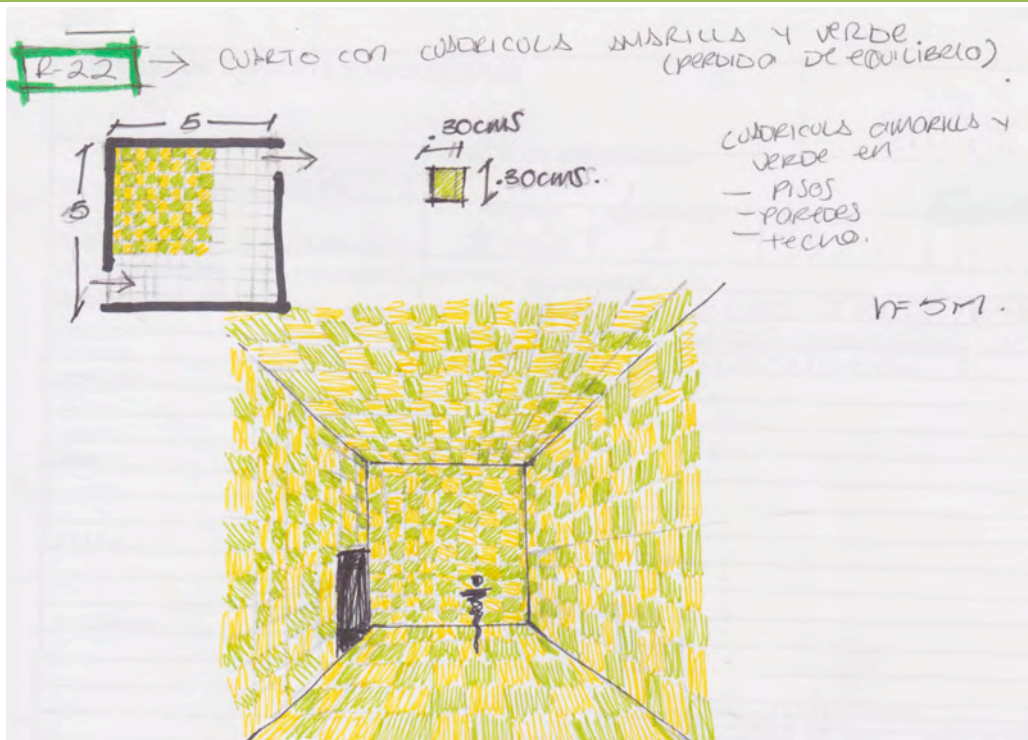 R-22 → CUARTO CON CUADRICULA AMARILLA Y VERDE
(PERDIDA DE EQUILIBRIO).
5
5
.30cms
.30cms.
CUADRICULA AMARILLA Y
VERDE en
- PISOS
- PAREDES
- tecHo.
h=5M.